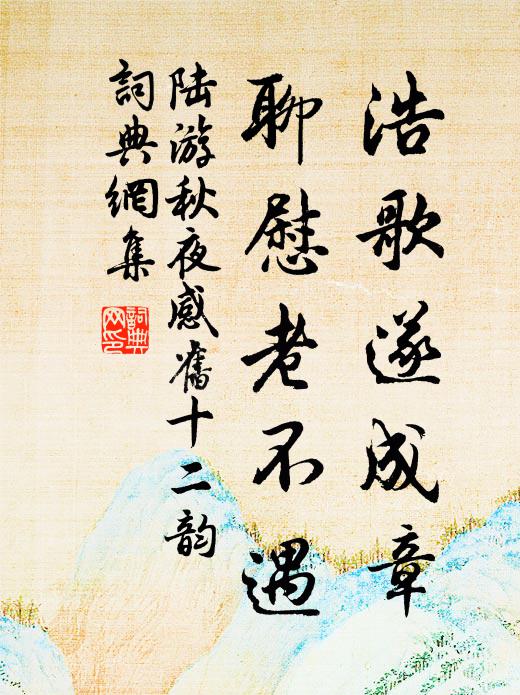 浩歌遂成章
聊慰老不遇
陆游秋夜感舊十二韵
詞典網集
詞典
网印